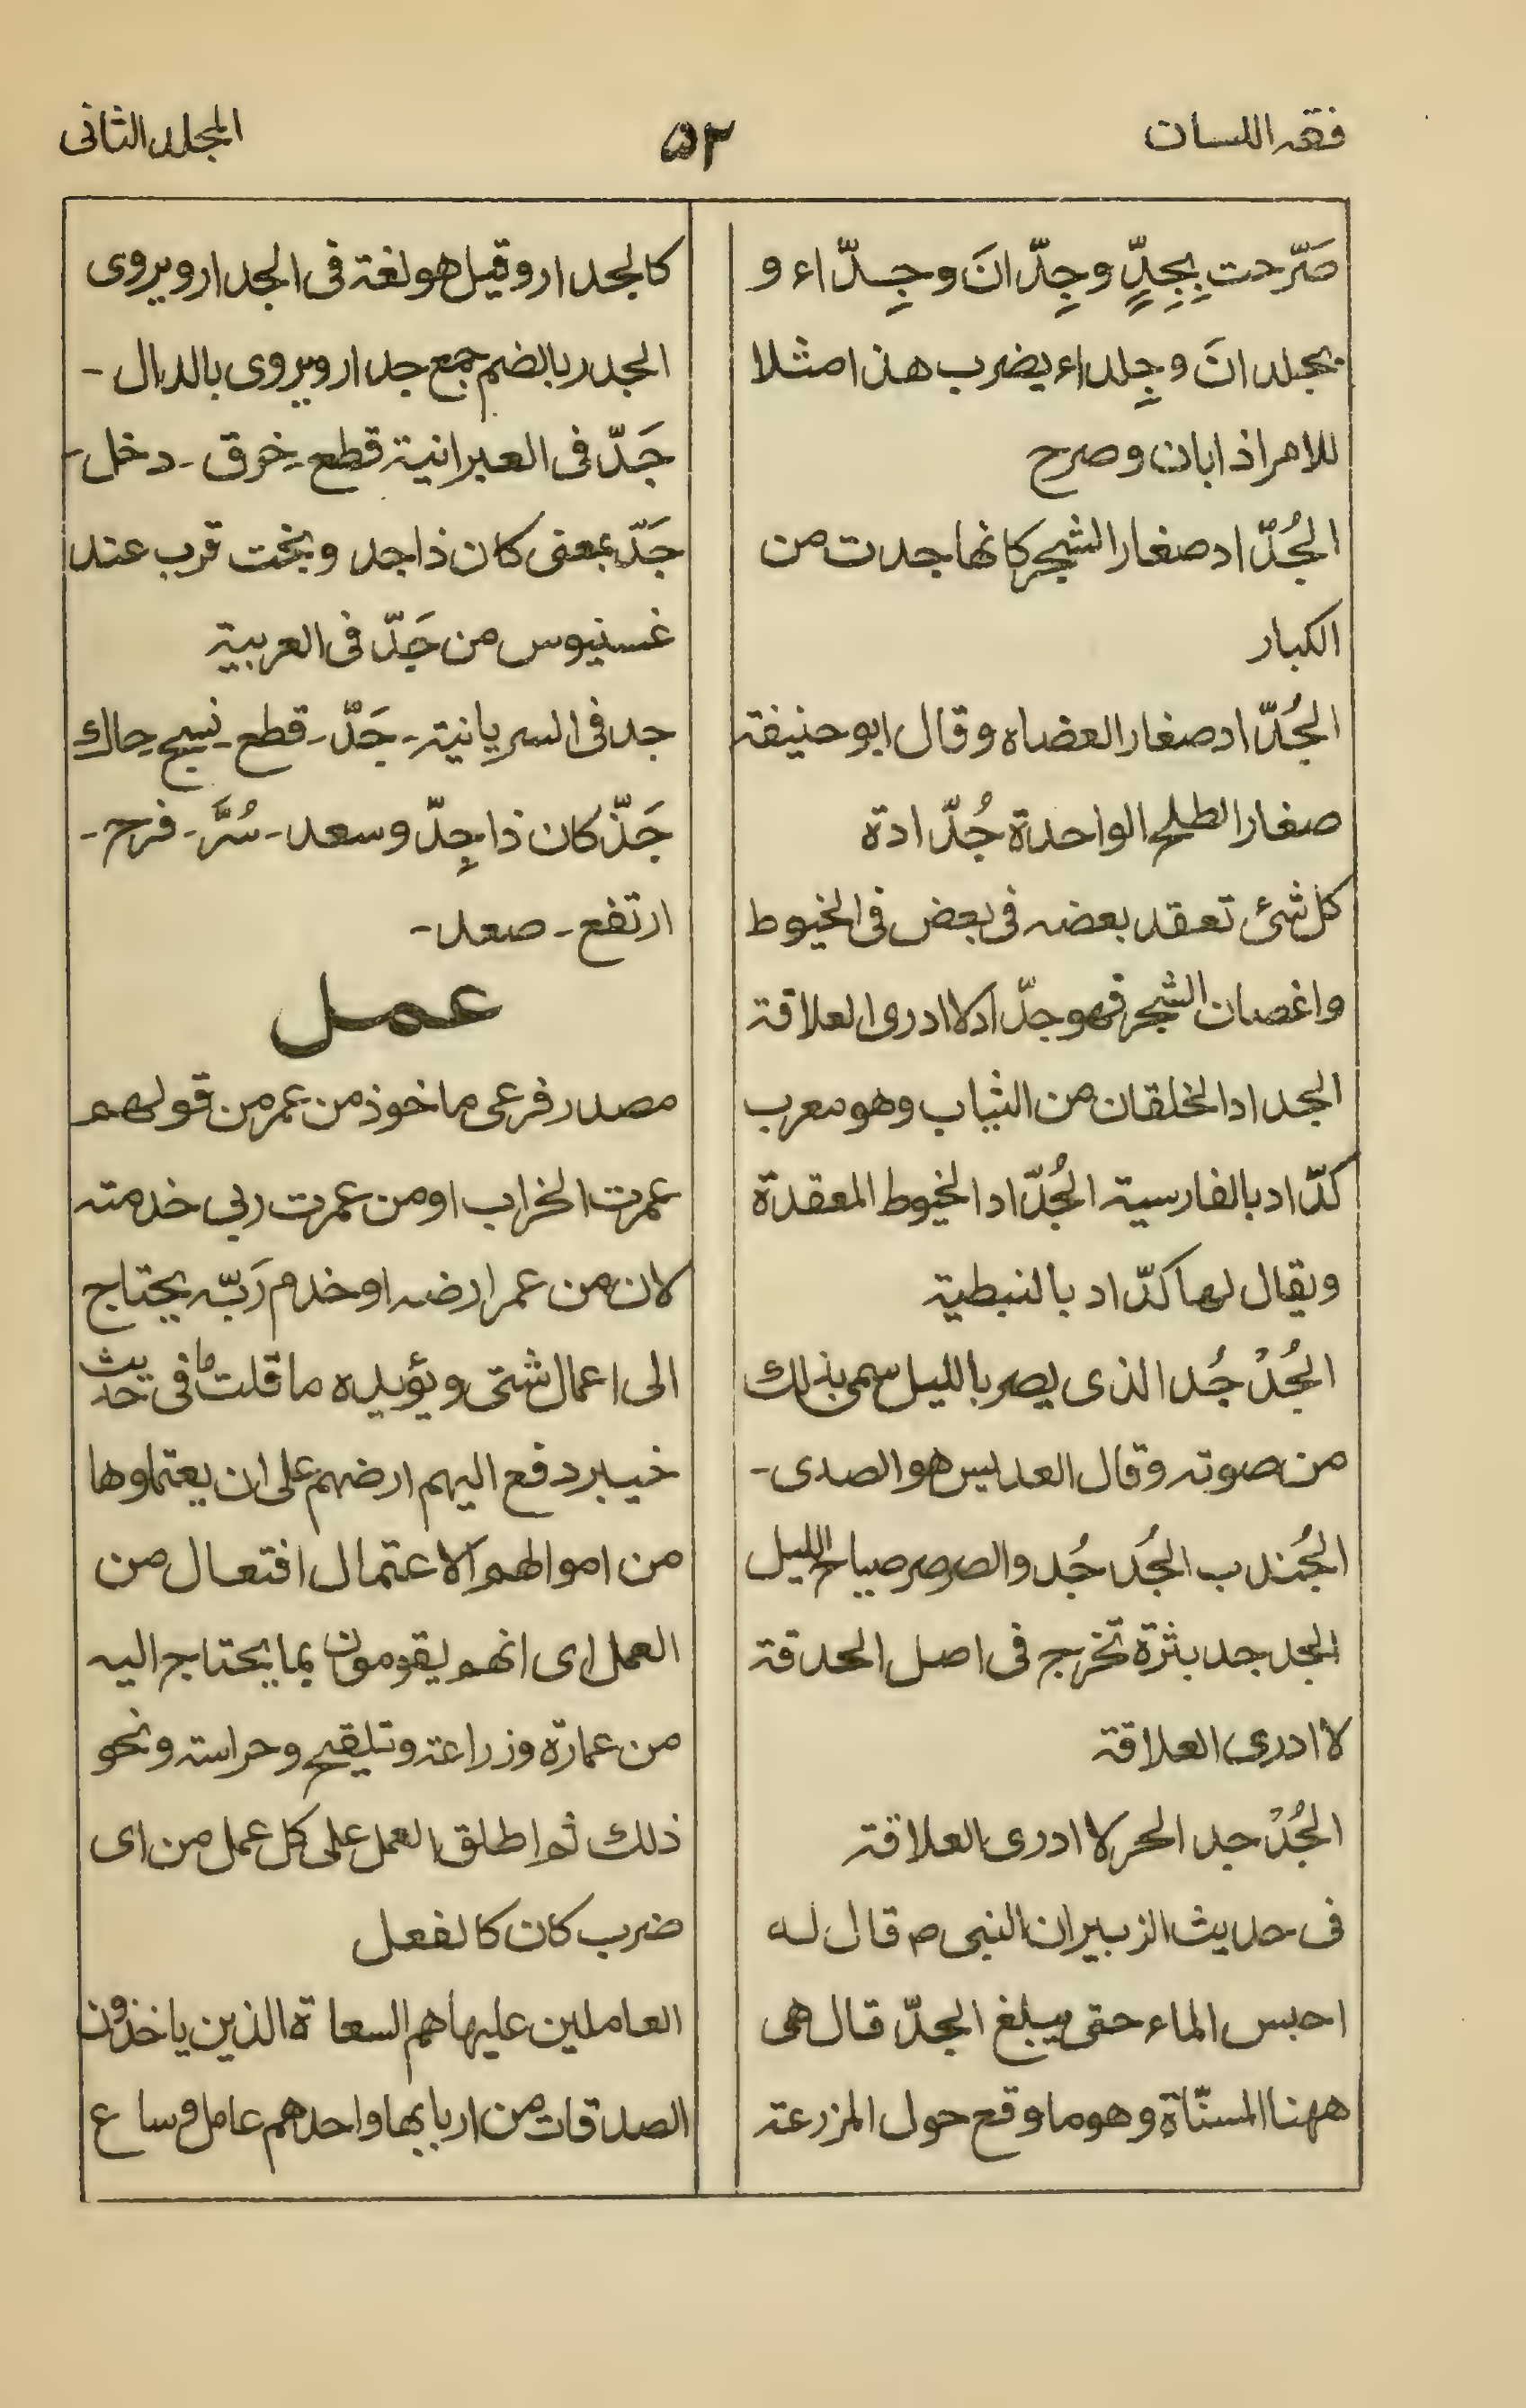 فقه اللسان
٥٢
المجلد الثانی
صَرّحت بِجِدٍّ وجِدّانَ وجِدّاء و
بجلدانَ وجِلداء يضرب هذا مثلا
للامر اذا بان وصرح
الجُدّاد صغار الشجر كانها جدت من
الكبار
الجُدّاد صغار العضاه وقال ابو حنيفة
صغار الطلح الواحدة جُدّادة
كل شئ تعقد بعضه فی بعض فی الخيوط
واغصان الشجر فهو جدّاد لا ادری العلاقة
الجداد الخلقان من الثياب وهو معرب
كدّاد بالفارسية الجُدّاد الخيوط المعقدة
ويقال لها كدّاد بالنبطية
الجُدْجُد الذی يصر بالليل سمی بذلك
من صوته وقال العدبس هو الصدی-
الجُندب الجُدجُد والصرصر صياح الليل
الجدجد بثرة تخرج فی اصل الحدقة
لا ادری العلاقة
الجُدْجد الحر لا ادری العلاقة
فی حديث الزبير ان النبی ص قال له
احبس الماء حتی يبلغ الجدّ قال هی
ههنا المسنّاة وهو ما وقع حول المزرعة
كالجدار وقيل هو لغة فی الجدار ويروی
الجدر بالضم جمع جدار ويروی بالذال-
جَدّ فی العبرانية قطع-خرق-دخل-
جَدّ بمعنی كان ذا جد وبخت قرب عند
غسنيوس من جَدّ فی العربية
جد فی السريانية-جَدّ-قطع-نسج-حاك
جَدّ كان ذا جِدّ وسعد-سُرَّ-فرح-
ارتفع-صعد-
عمل
مصدر فرعی ماخوذ من عمر من قولهم
عمرت الخراب او من عمرت ربی خدمته
لان من عمر ارضه او خدم رَبّه يحتاج
الی اعمال شتی ويؤيده ما قلت ما فی حديث
خيبر دفع اليهم ارضهم علی ان يعتملوها
من اموالهم الاعتمال افتعال من
العمل ای انهم يقومون بما يحتاج اليه
من عمارة وزراعة وتلقيح وحراسة ونحو
ذلك ثم اطلق العمل علی كل عمل من ای
ضرب كان كالفعل
العاملين عليها هم السعاة الذين ياخذون
الصدقات من اربابها واحدهم عامل وساع